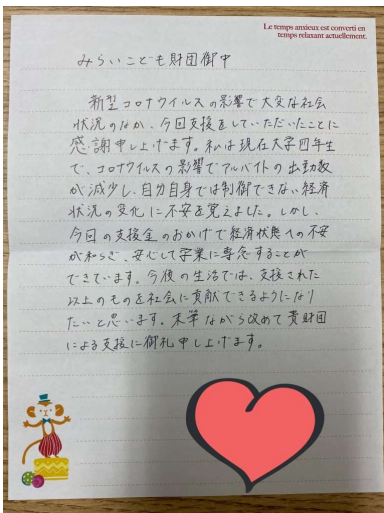 Le temps anxieux est converti en
temps relaxant actuellement.
みらいこども財団御中
新型コロナウイルスの影響で大変な社会
状況のなか、今回支援をしていただいたことに
感謝申し上げます。私は現在大学四年生
で、コロナウイルスの影響でアルバイトの出勤数
が減少し、自分自身では制御できない経済
状況の変化に不安を覚えました。しかし、
今回の支援金のおかげで経済状態への不安
が和らぎ、安心して学業に専念することが
できています。今後の生活では、支援された
以上のものを社会に貢献できるようになり
たいと思います。末筆ながら改めて貴財団
による支援に御礼申し上げます。